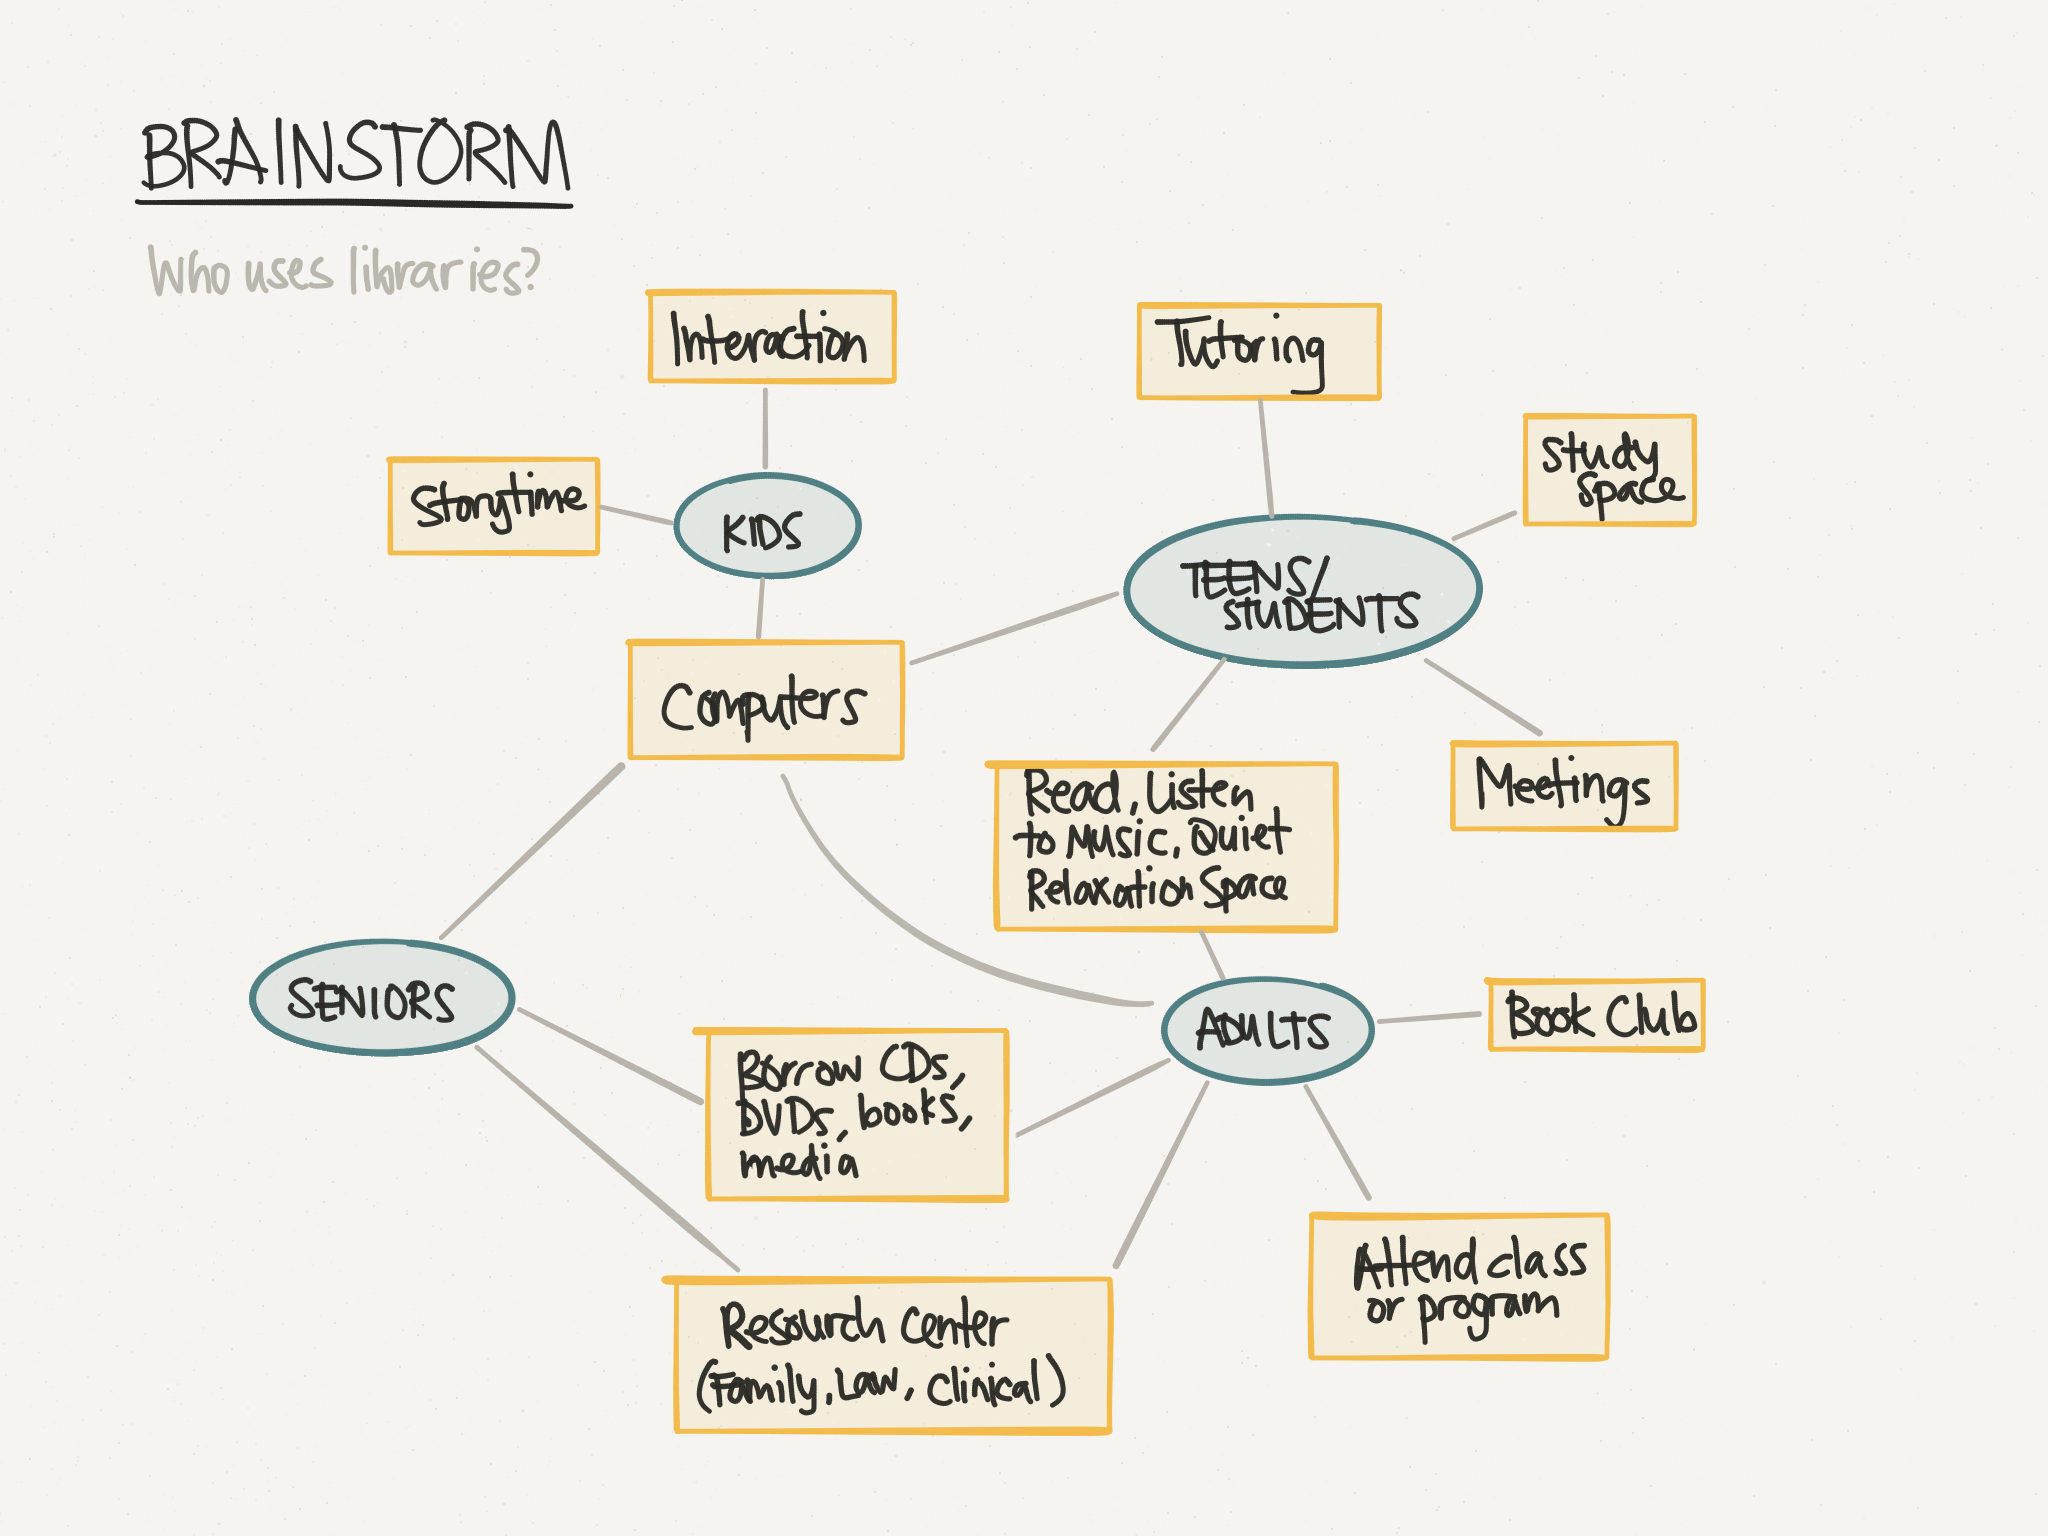 BRAINSTORM
Who uses libraries?
Interaction
Tutoring
Study
Space
Storytime
KIDS
TEENS/
STUDENTS
Computers
Read, Listen
to Music, Quiet
Relaxation Space
Meetings
SENIORS
ADULTS
Book Club
Borrow CDs,
DVDs, books,
media
Attend class
or program
Resourch Center
(Family, Law, Clinical)